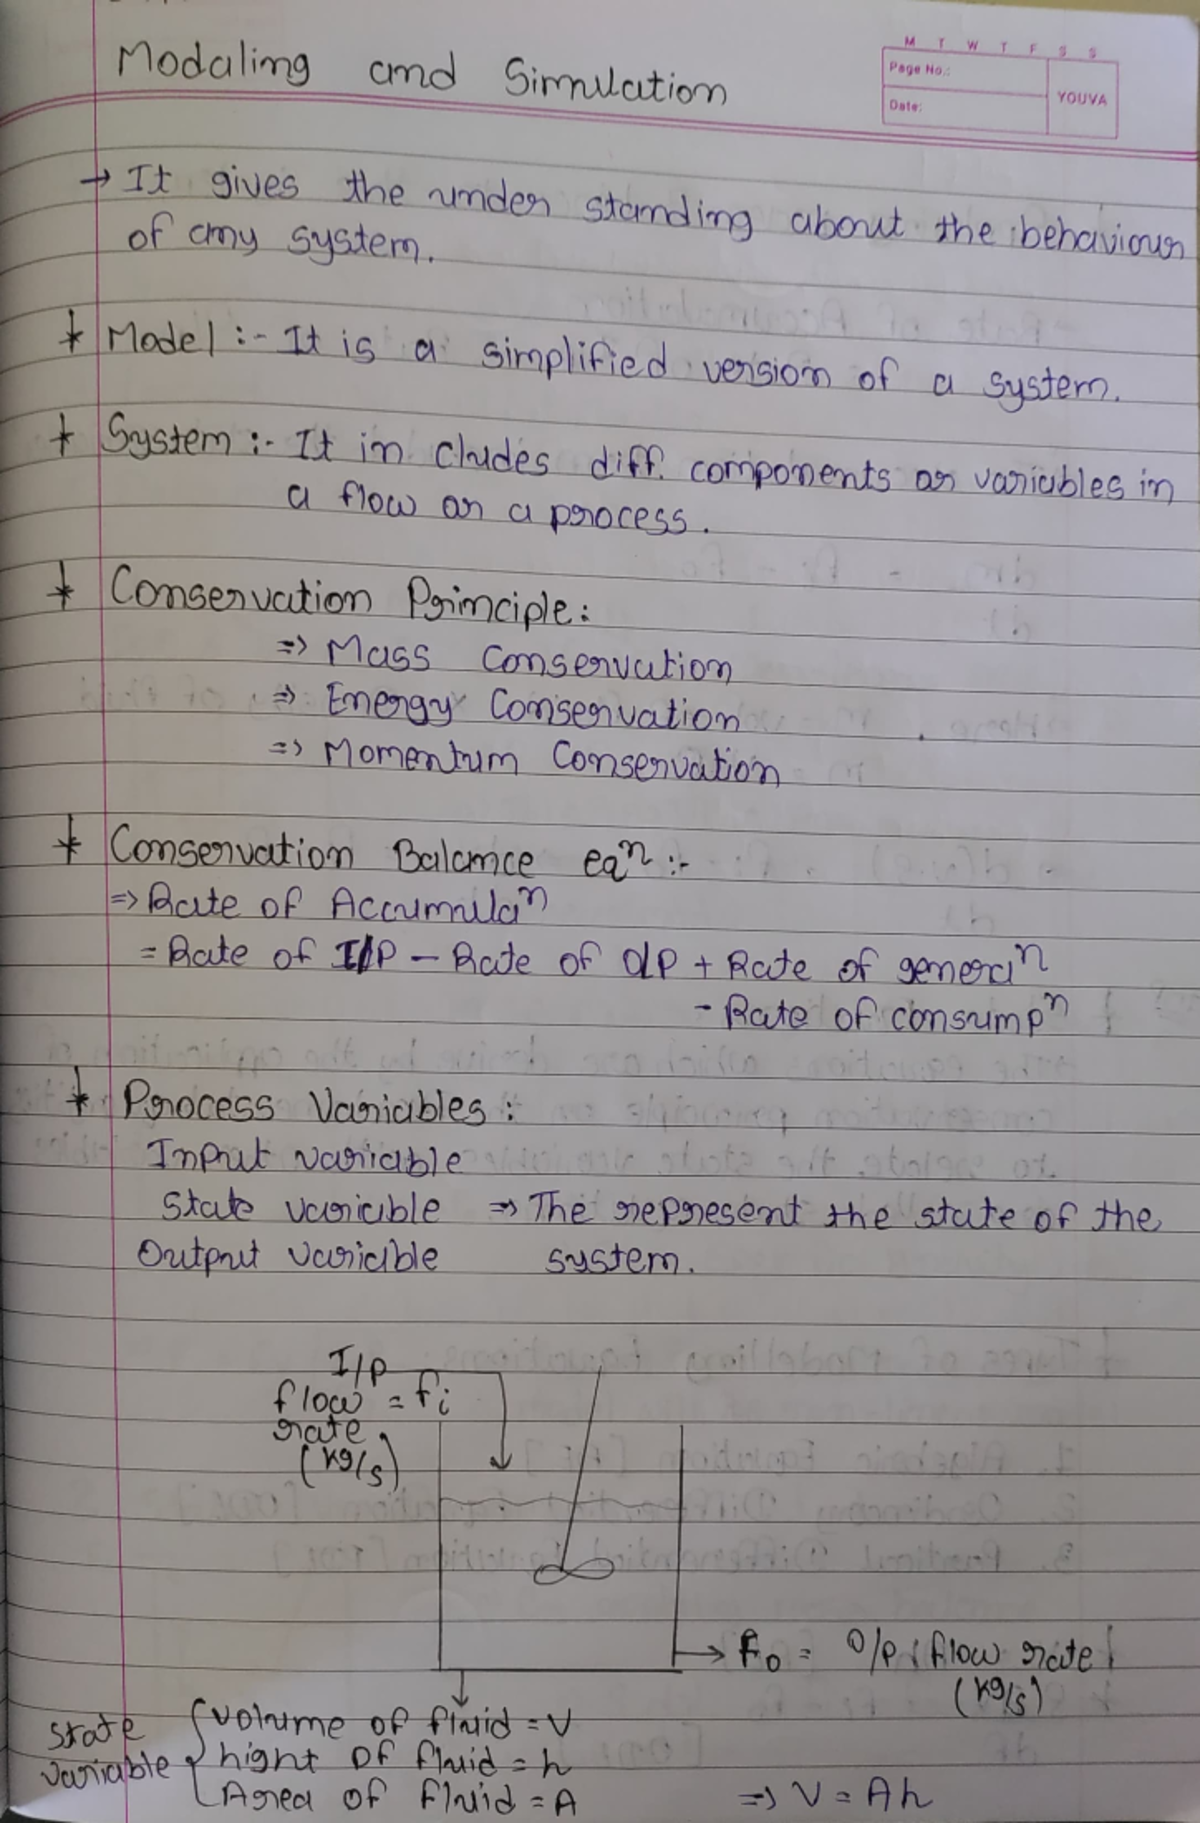 Modaling and Simulation
M T W T F S S
Page No.:
YOUVA
Date:
→ It gives the under standing about the behaviour
of any system.
* Model :- It is a simplified version of a system.
* System :- It in cludes diff. components or variables in
a flow or a process.
* Conservation Principle :
⇒ Mass Conservation
⇒ Energy Conservation
⇒ Momentum Conservation
* Conservation Balance eqⁿ :-
⇒ Rate of Accumulaⁿ
= Rate of I/P - Rate of O/P + Rate of generaⁿ
- Rate of consumpⁿ
* Process Variables :
Input variable
State variable ⇒ The represent the state of the
Output variable system.
I/P
flow = Fi
rate
(kg/s)
→ Fo = O/P flow rate
(kg/s)
State variable { volume of fluid = V
hight of fluid = h
Area of fluid = A ⇒ V = Ah